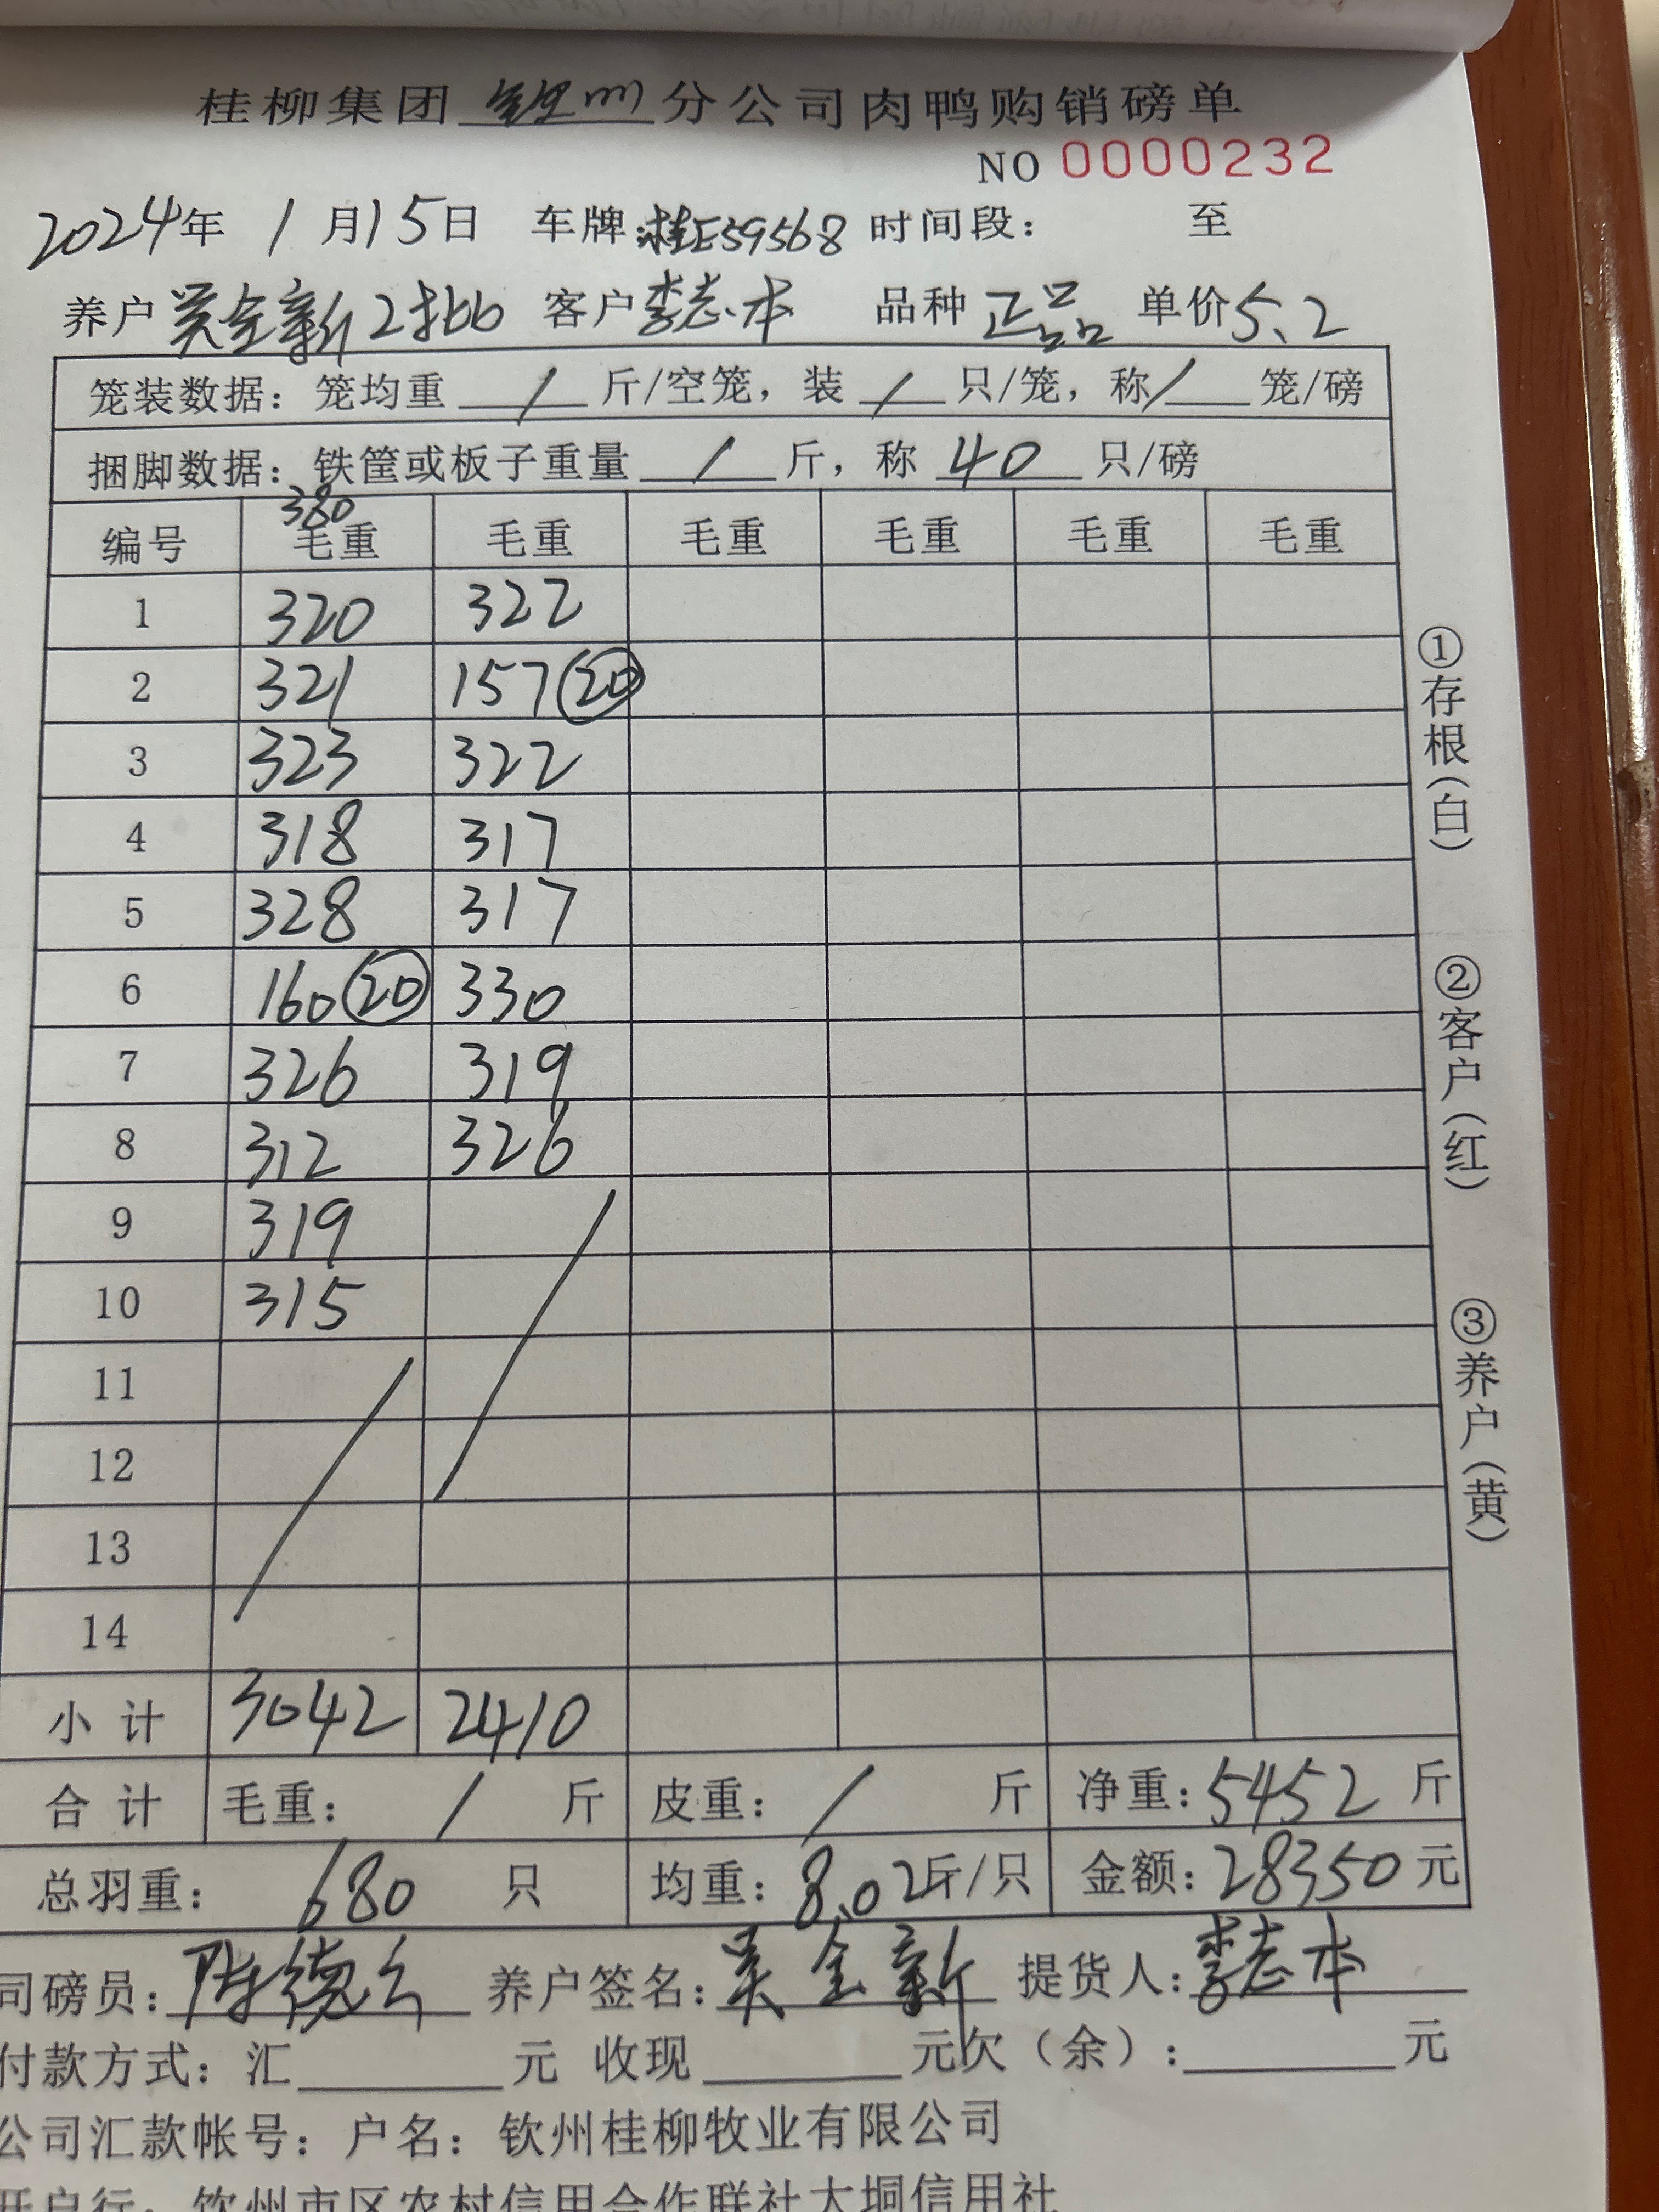 桂柳集团 钦州 分公司肉鸭购销磅单
NO 0000232
2024年 1月15日 车牌:桂E59568 时间段: 至
养户 吴金新2批 客户 李志本 品种 正品 单价5.2
笼装数据: 笼均重 / 斤/空笼, 装 / 只/笼, 称 / 笼/磅
捆脚数据: 铁筐或板子重量 / 斤, 称 40 只/磅
380
编号 毛重 毛重 毛重 毛重 毛重 毛重
1 320 322
2 321 157 20
3 323 322
4 318 317
5 328 317
6 160 20 330
7 326 319
8 312 326
9 319
10 315
11
12
13
14
小计 3042 2410
合计 毛重: / 斤 皮重: / 斤 净重: 5452 斤
总羽重: 680 只 均重: 8.02斤/只 金额: 28350元
司磅员: 陈德 养户签名: 吴金新 提货人: 李志本
付款方式: 汇 元 收现 元欠(余): 元
公司汇款帐号: 户名: 钦州桂柳牧业有限公司
开户行: 钦州市区农村信用合作联社大垌信用社
①存根(白)
②客户(红)
③养户(黄)